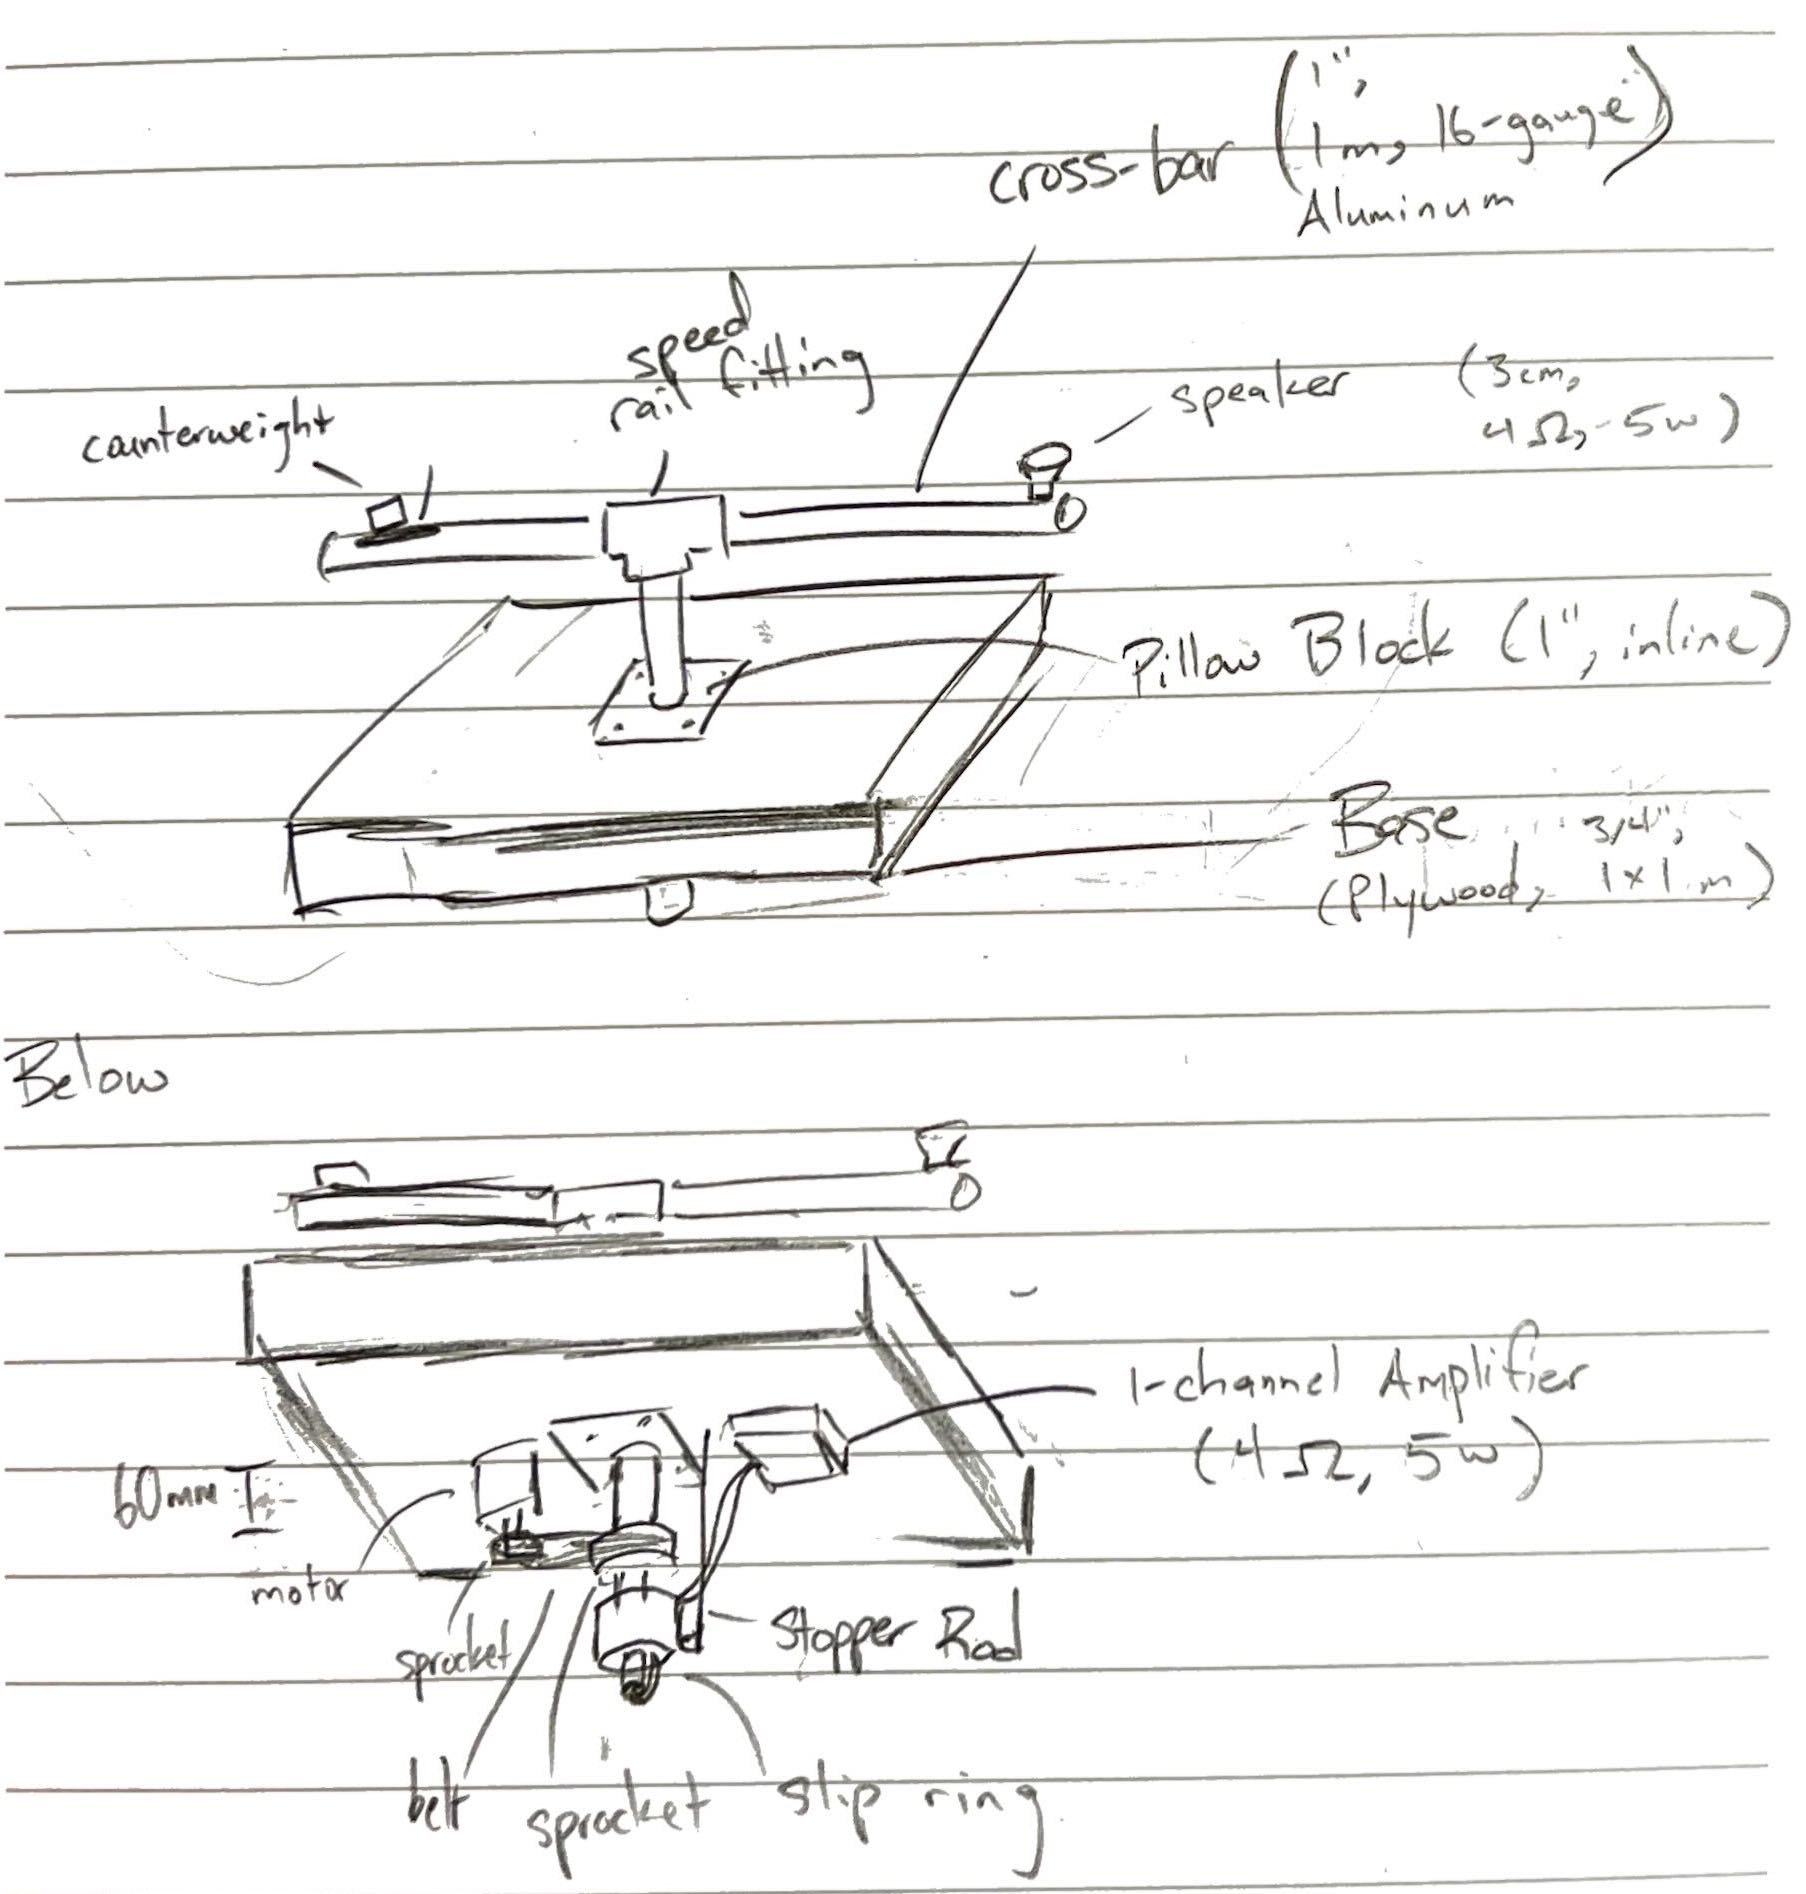 cross-bar (1",
1m, 16-gauge)
Aluminum
speed
rail fitting
counterweight
speaker (3cm,
4Ω, 5w)
Pillow Block (1", inline)
Base 3/4",
(Plywood, 1x1m)
Below
1-channel Amplifier
(4Ω, 5w)
60mm
motor
Stopper Rod
sprocket
belt sprocket slip ring